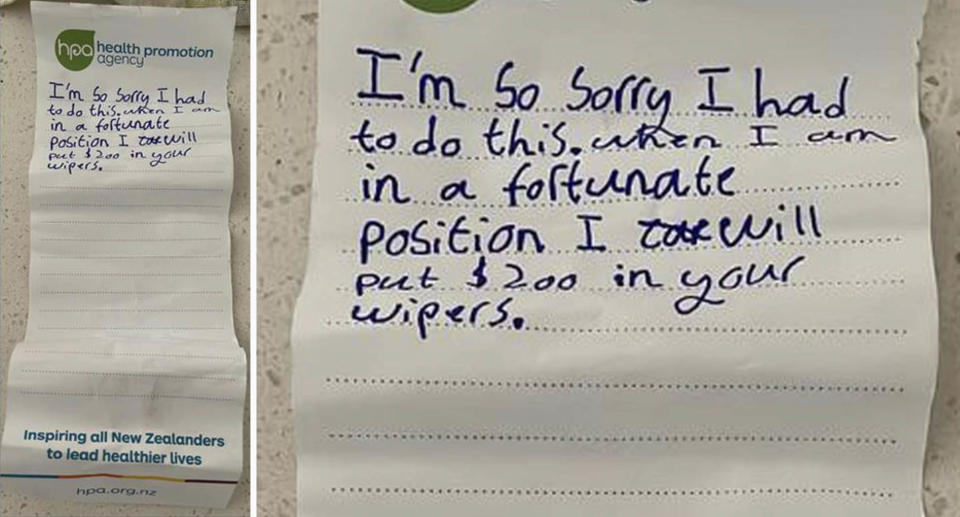 hpa health promotion
agency
I'm So Sorry I had
to do this. when I am
in a fortunate
position I will
put $200 in your
wipers.
Inspiring all New Zealanders
to lead healthier lives
hpa.org.nz
I'm So Sorry I had
to do this. when I am
in a fortunate
position I will
put $200 in your
wipers.